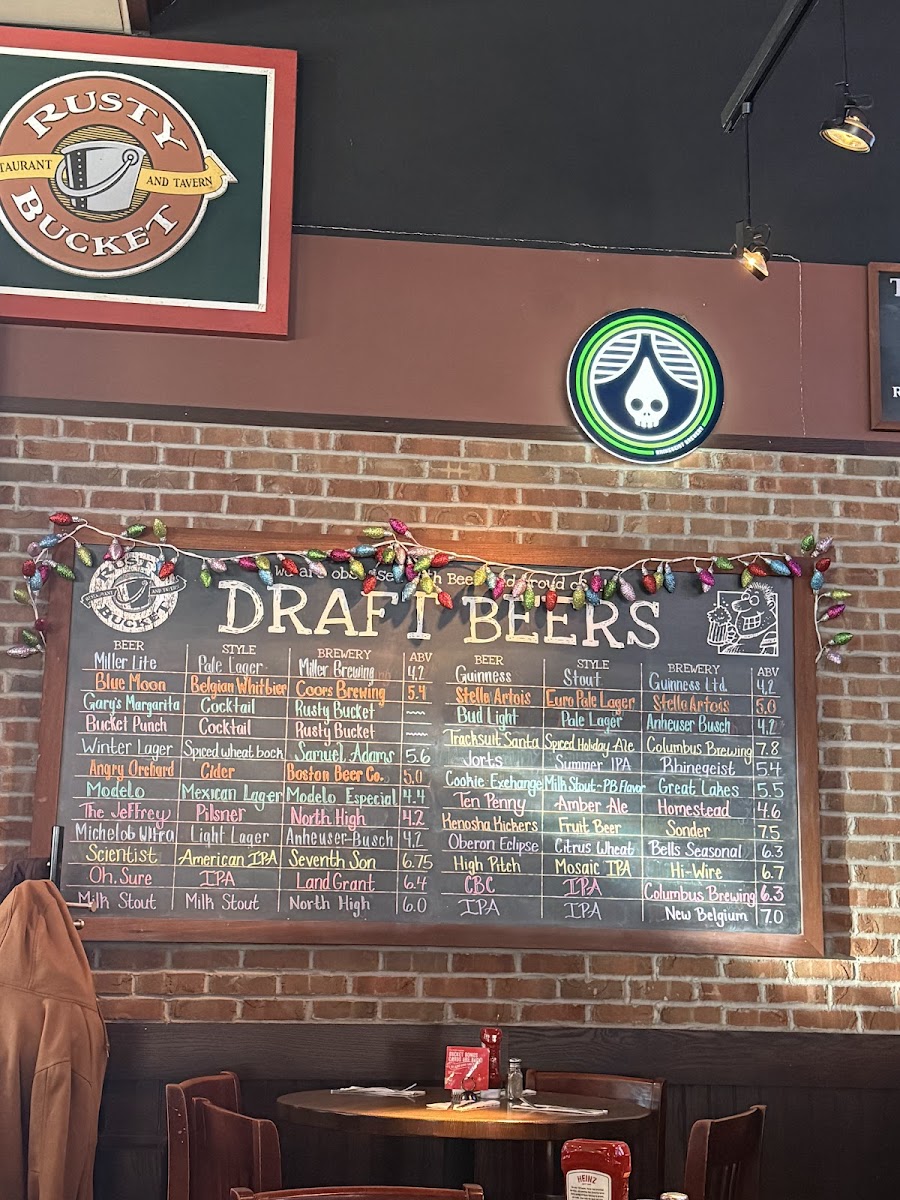 RUSTY
TAURANT AND TAVERN
BUCKET
T
R
RHINEGEIST BREWERY
RUSTY
AND TAVERN
BUCKET
DRAFT BEERS
BEER STYLE BREWERY ABV
Miller Lite Pale Lager Miller Brewing 4.2
Blue Moon Belgian Whitbier Coors Brewing 5.4
Gary's Margarita Cocktail Rusty Bucket ~~~
Bucket Punch Cocktail Rusty Bucket ~~~
Winter Lager Spiced wheat boch Samuel Adams 5.6
Angry Orchard Cider Boston Beer Co. 5.0
Modelo Mexican Lager Modelo Especial 4.4
The Jeffrey Pilsner North High 4.2
Michelob Ultra Light Lager Anheuser-Busch 4.2
Scientist American IPA Seventh Son 6.75
Oh, Sure IPA Land Grant 6.4
Milk Stout Milk Stout North High 6.0
BEER STYLE BREWERY ABV
Guinness Stout Guinness Ltd. 4.2
Stella Artois Euro Pale Lager Stella Artois 5.0
Bud Light Pale Lager Anheuser Busch 4.2
Tracksuit Santa Spiced Holiday Ale Columbus Brewing 7.8
Jorts Summer IPA Rhinegeist 5.4
Cookie Exchange Milk Stout-PB Flavor Great Lakes 5.5
Ten Penny Amber Ale Homestead 4.6
Kenosha Kickers Fruit Beer Sonder 7.5
Oberon Eclipse Citrus Wheat Bells Seasonal 6.3
High Pitch Mosaic IPA Hi-Wire 6.7
CBC IPA Columbus Brewing 6.3
IPA IPA New Belgium 7.0
HEINZ